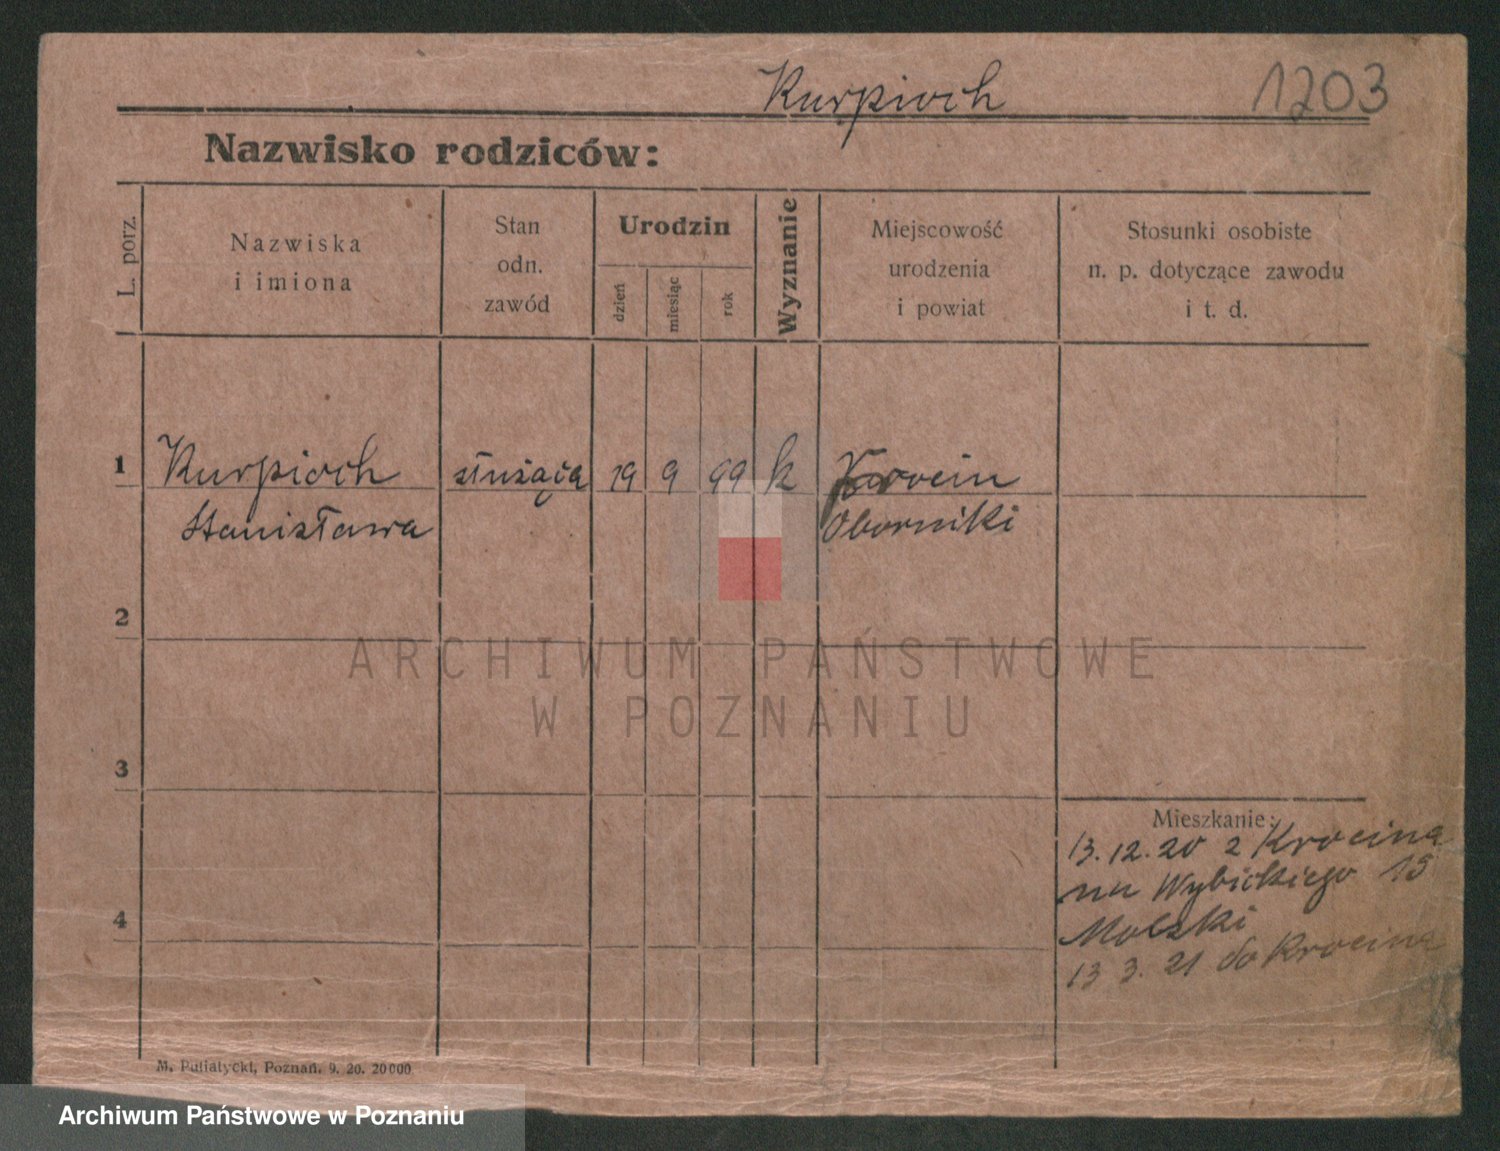 Kurpioch 1203
Nazwisko rodziców:
L. porz.
Nazwiska
i imiona
Stan
odn.
zawód
Urodzin
dzień
miesiąc
rok
Wyznanie
Miejscowość
urodzenia
i powiat
Stosunki osobiste
n. p. dotyczące zawodu
i t. d.
1 Kurpioch służąca 19 9 99 k Krocin
Stanisława Oborniki
2
ARCHIWUM PAŃSTWOWE
W POZNANIU
3
Mieszkanie:
13.12.20 z Krocina
na Wybickiego 15
4
13 3. 21 do Krocina
M. Putiatycki, Poznań. 9. 20. 20000
Archiwum Państwowe w Poznaniu